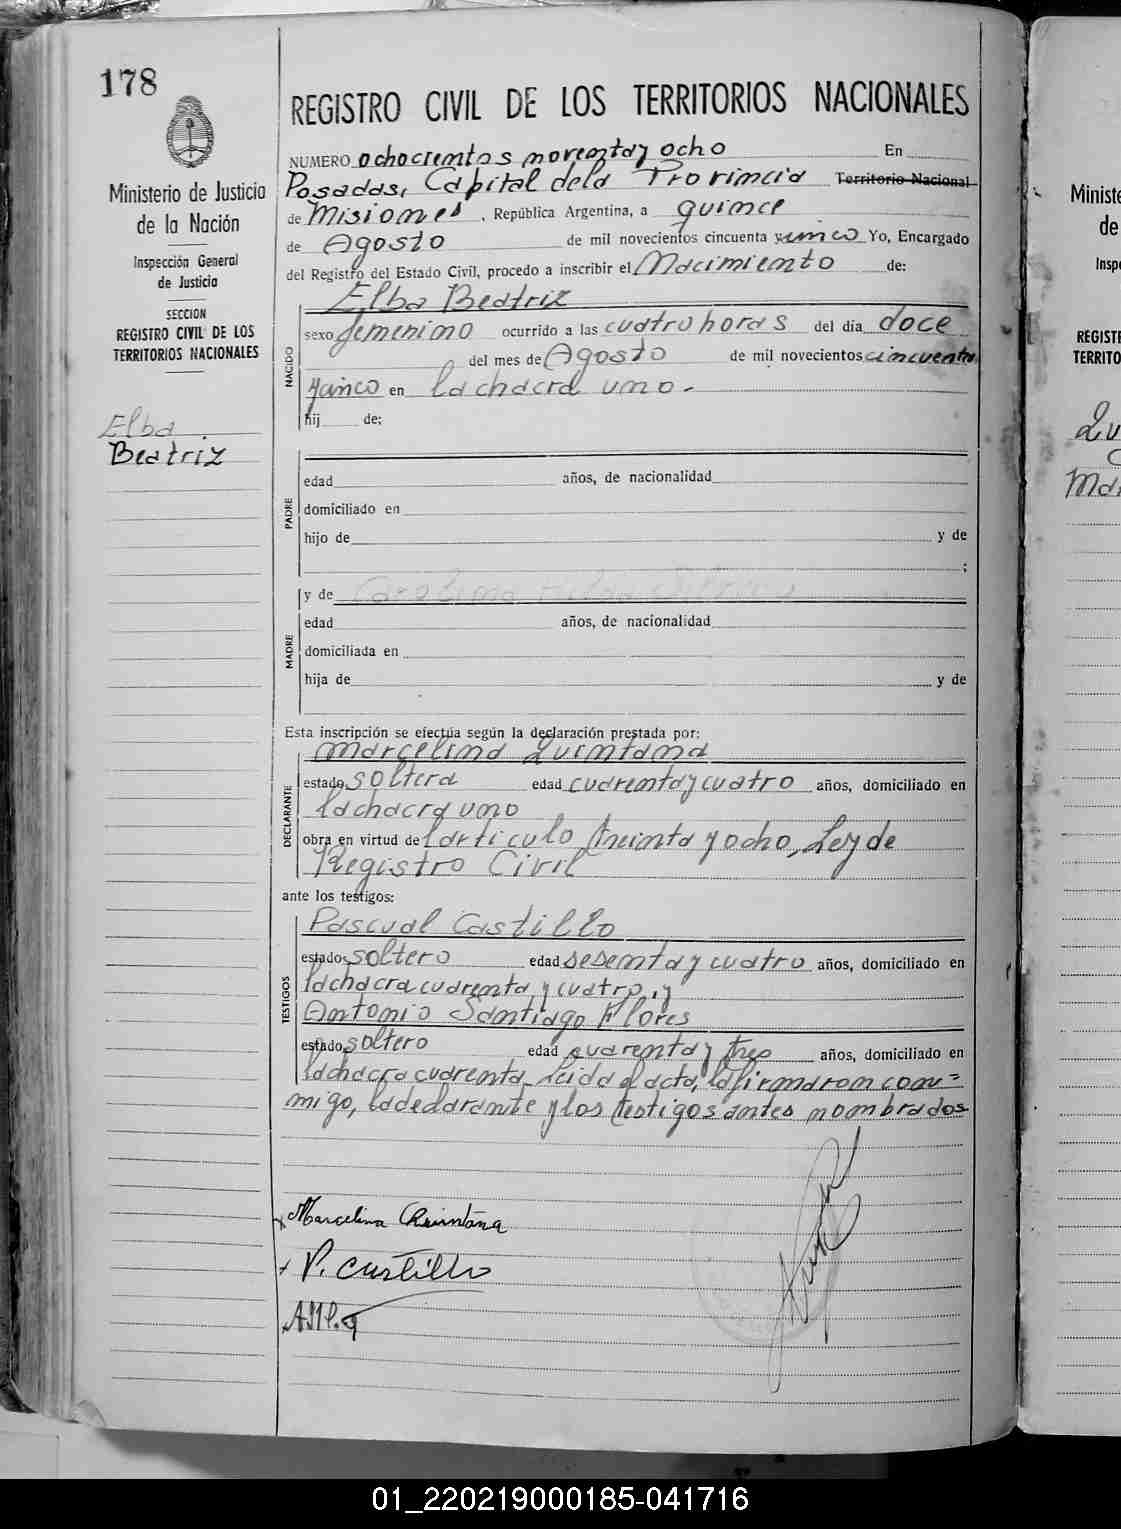 178
Ministerio de Justicia
de la Nación
Inspección General
de Justicia
SECCION
REGISTRO CIVIL DE LOS
TERRITORIOS NACIONALES
Elba
Beatriz
REGISTRO CIVIL DE LOS TERRITORIOS NACIONALES
NUMERO ochocientos noventa y ocho En
Posadas, Capital de la Provincia Territorio Nacional
de Misiones, República Argentina, a quince
de Agosto de mil novecientos cincuenta y cinco Yo, Encargado
del Registro del Estado Civil, procedo a inscribir el Nacimiento de:
NACIDO
Elba Beatriz
sexo femenino ocurrido a las cuatro horas del día doce
del mes de Agosto de mil novecientos cincuenta
y cinco en la chacra uno.-
hij de;
PADRE
edad años, de nacionalidad
domiciliado en
hijo de y de
;
y de
MADRE
edad años, de nacionalidad
domiciliada en
hija de y de
Esta inscripción se efectúa según la declaración prestada por:
DECLARANTE
Marcelina Quintana
estado soltera edad cuarenta y cuatro años, domiciliado en
la chacra uno
obra en virtud del artículo treinta y ocho, Ley de
Registro Civil
ante los testigos:
TESTIGOS
Pascual Castillo
estado soltero edad sesenta y cuatro años, domiciliado en
la chacra cuarenta y cuatro, y
Antonio Santiago Flores
estado soltero edad cuarenta y tres años, domiciliado en
la chacra cuarenta. Leida el acta, la firmaron con-
migo, la declarante y los testigos antes nombrados
Marcelina Quintana
P. Castillo
Ministe
de
Insp
REGISTR
TERRITO
Qu
Mar
01_220219000185-041716